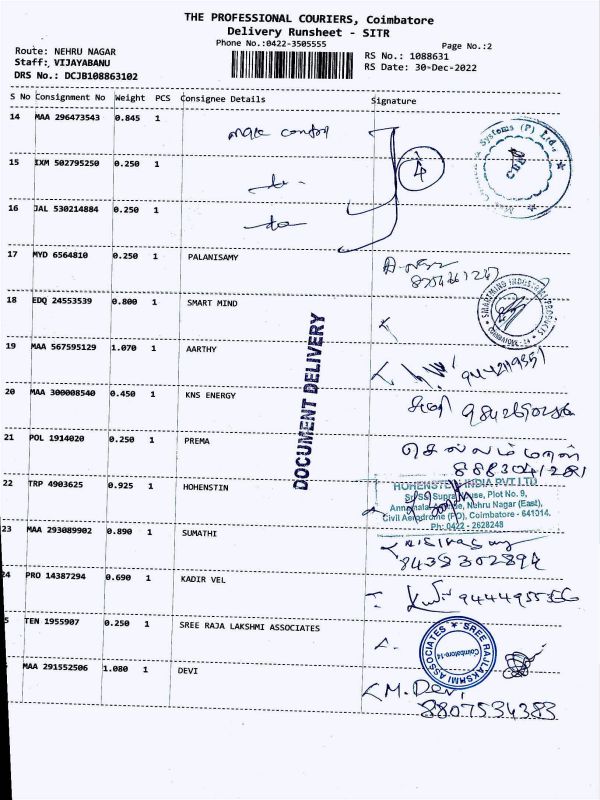 THE PROFESSIONAL COURIERS, Coimbatore
Delivery Runsheet - SITR
Phone No.:0422-3505555
Page No.:2
Route: NEHRU NAGAR
Staff: VIJAYABANU
DRS No.: DCJB108863102
RS No.: 1088631
RS Date: 30-Dec-2022
S No Consignment No Weight PCS Consignee Details Signature
14 MAA 296473543 0.845 1
4
15 IXM 502795250 0.250 1
16 JAL 530214884 0.250 1
17 MYD 6564810 0.250 1 PALANISAMY
18 EDQ 24553539 0.800 1 SMART MIND
19 MAA 567595129 1.070 1 AARTHY
20 MAA 300008540 0.450 1 KNS ENERGY
21 POL 1914020 0.250 1 PREMA
செல்லம்மாள்
8883041281
DOCUMENT DELIVERY
22 TRP 4903625 0.925 1 HOHENSTIN
HOHENSTEIN INDIA PVT LTD
House, Plot No. 9,
Nehru Nagar (East),
Civil Aerodrome (PO), Coimbatore - 641014.
Ph: 0422 - 2628248
23 MAA 293089902 0.890 1 SUMATHI
8438302894
24 PRO 14387294 0.690 1 KADIR VEL
5 TEN 1955907 0.250 1 SREE RAJA LAKSHMI ASSOCIATES
SREE RAJLAKSHMI ASSOCIATES
Coimbatore-14
MAA 291552506 1.080 1 DEVI
M. Devi
8807534383